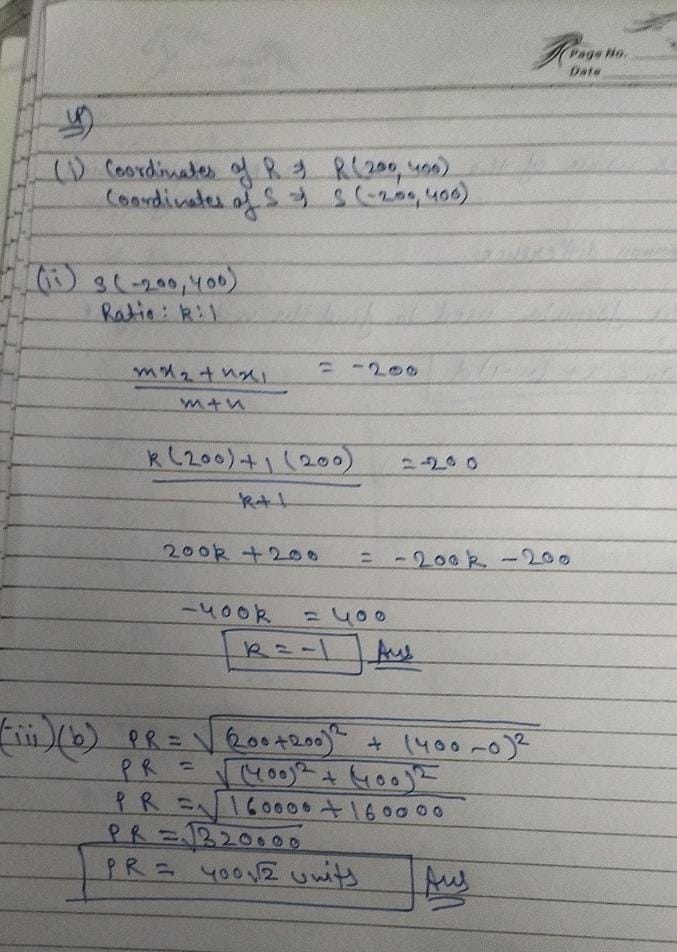 Page No.
Date
(i) Coordinates of R ⇒ R(200, 400)
Coordinates of S ⇒ S(-200, 400)
(ii) S(-200, 400)
Ratio : k:1
mx₂ + nx₁ = -200
m+n
k(200) + 1(200) = -200
k+1
200k + 200 = -200k - 200
-400k = 400
k = -1 Ans
(iii)(b) PR = √(200+200)² + (400-0)²
PR = √(400)² + (400)²
PR = √160000 + 160000
PR = √320000
PR = 400√2 units Ans